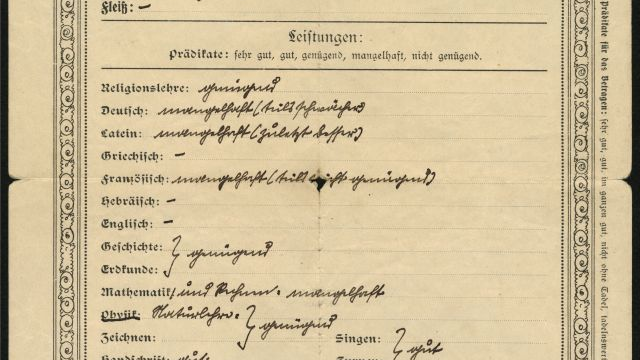 Fleiß: —
Leistungen:
Prädikate: sehr gut, gut, genügend, mangelhaft, nicht genügend.
Religionslehre: genügend
Deutsch: mangelhaft (teils schwächer)
Latein: mangelhaft (zuletzt besser)
Griechisch: —
Französisch: mangelhaft (teils nicht genügend)
Hebräisch: —
Englisch: —
Geschichte: } genügend
Erdkunde:
Mathematik: und Rechnen: mangelhaft
Physik: Naturlehre: } genügend
Zeichnen:
Singen: } gut
Handschrift: gut.
Turnen:
Prädikate für das Betragen: sehr gut, gut, im ganzen gut, nicht ohne Tadel, tadelnswert